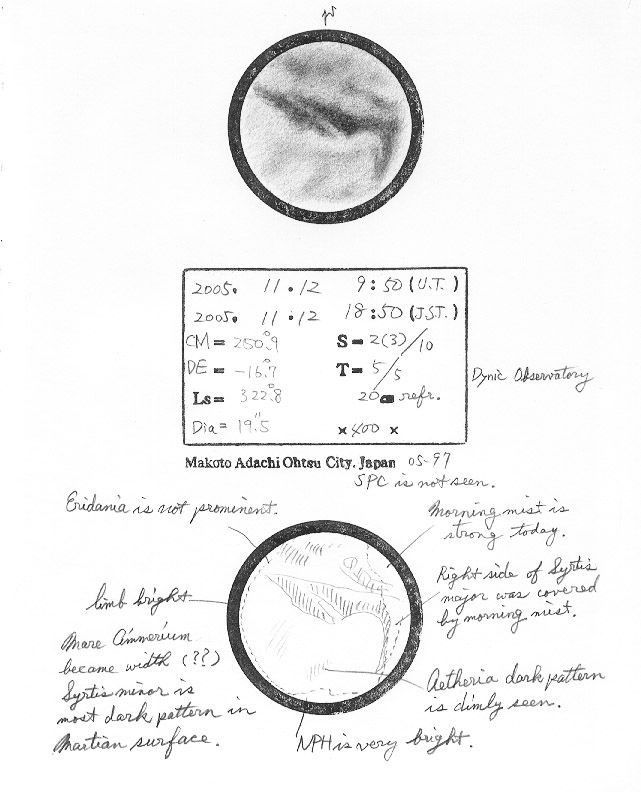 N
2005. 11.12 9:50 (U.T.)
2005. 11.12 18:50 (J.S.T.)
CM= 250°.9 S=2(3)/10
DE= -16°.7 T=5/5
Ls= 322°.8 20cm refr.
Dia= 19".5 ×400 ×
Dynic Observatory
Makoto Adachi Ohtsu City, Japan 05-97
SPC is not seen.
Eridania is not prominent.
Morning mist is
strong today.
Right side of Syrtis
major was covered
by morning mist.
limb bright
Mare Cimmerium
became width (??)
Syrtis minor is
most dark pattern in
Martian surface.
Aetheria dark pattern
is dimly seen.
NPH is very bright.